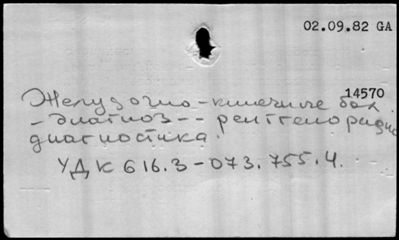 02.09.82 GA
14570
Желудочно-кишечные бол.
- диагноз -- рентгенорадио
диагностика.
УДК 616.3-073.755.4.